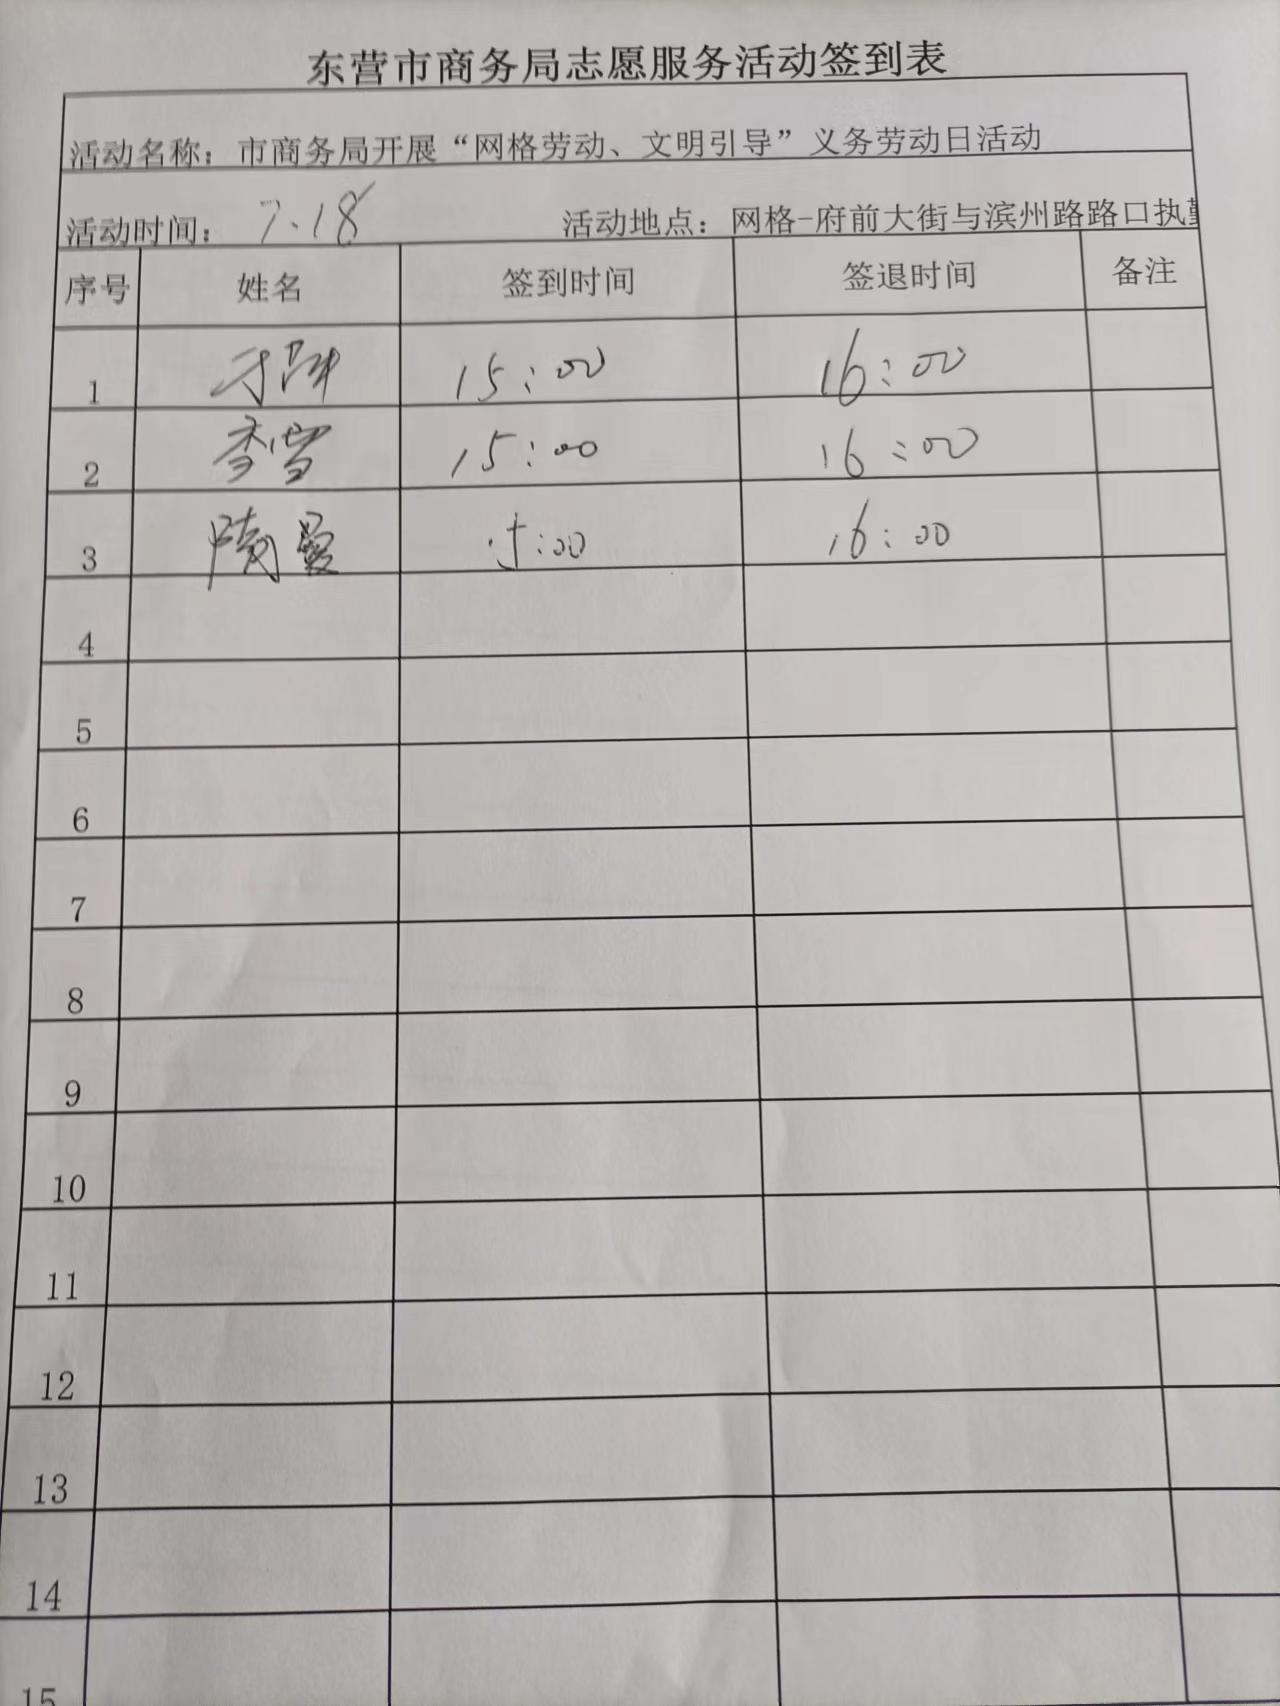 东营市商务局志愿服务活动签到表
活动名称：市商务局开展“网格劳动、文明引导”义务劳动日活动
活动时间：7.18 活动地点：网格-府前大街与滨州路路口执勤
序号 姓名 签到时间 签退时间 备注
1 15:00 16:00
2 李雪 15:00 16:00
3 隋曼 15:00 16:00
4
5
6
7
8
9
10
11
12
13
14
15